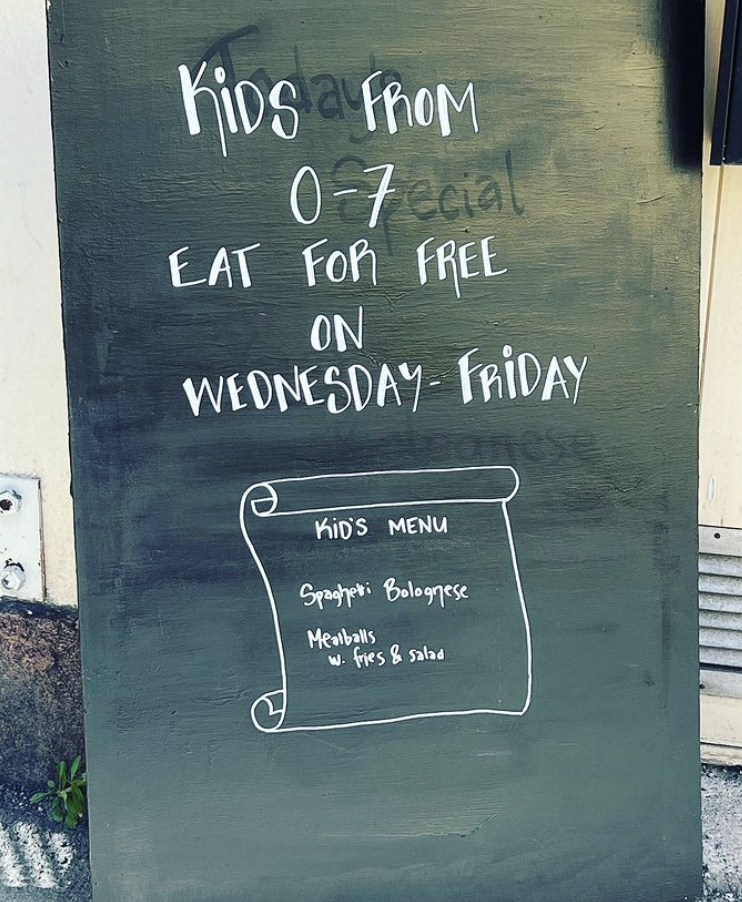 Today's
KiDS FROM
0-7
Special
EAT FOR FREE
ON
WEDNESDAY - FRiDAY
KiD'S MENU
Spaghetti Bolognese
Meatballs
w. fries & salad